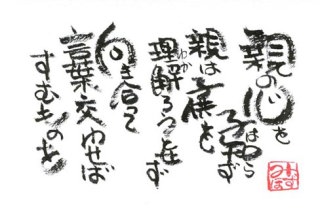 親の心を
子はわからず
親は
理解ろうとせず
向き合って
言葉交わせば
すむものを